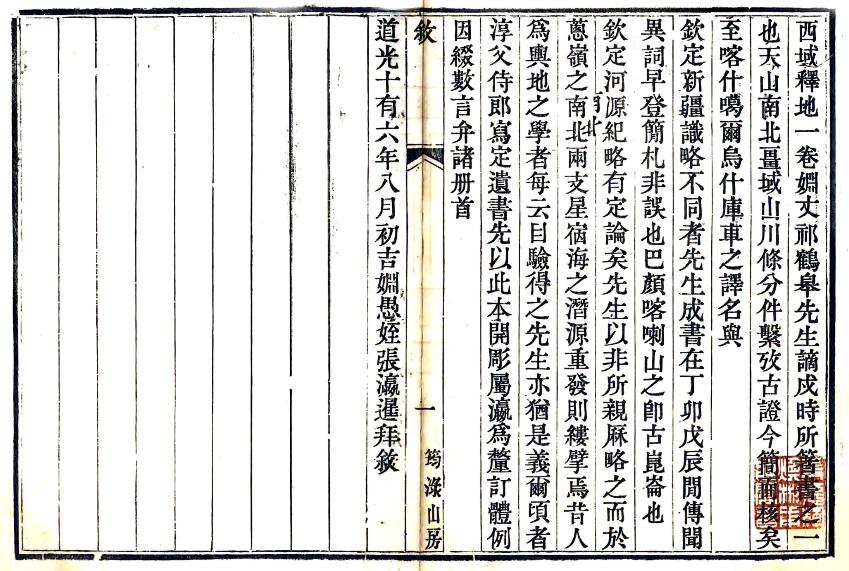 西域釋地一卷姻丈祁鶴皋先生謫戍時所著書之一
也天山南北畺域山川條分件繫攷古證今簡而核矣
至喀什噶爾烏什庫車之譯名與
欽定新疆識略不同者先生成書在丁卯戊辰閒傳聞
異詞早登簡札非誤也巴顏喀喇山之卽古崑崙也
欽定河源紀略有定論矣先生以非所親厤略之而於
蔥嶺之南北兩支星宿海之潛源重發則縷擘焉昔人
爲輿地之學者每云目驗得之先生亦猶是義爾頃者
淳父侍郎寫定遺書先以此本開彫屬瀛爲釐訂體例
因綴數言弁諸册首
敘
一
筠淥山房
道光十有六年八月初吉姻愚姪張瀛暹拜敘